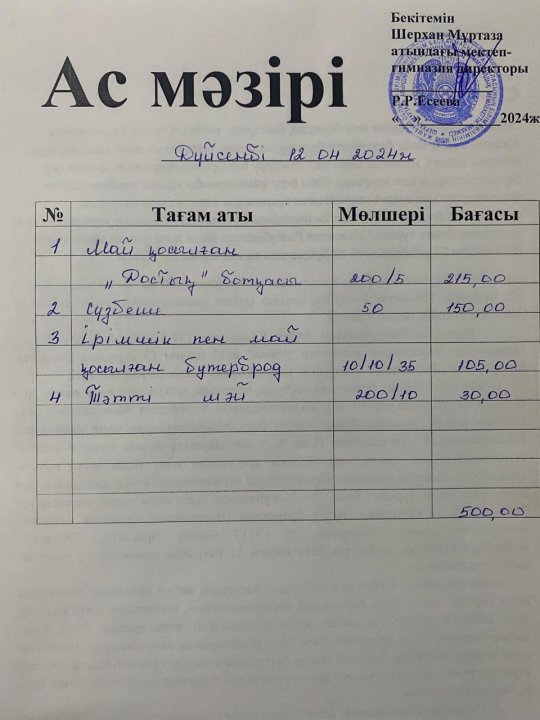 Бекітемін
Шерхан Мұртаза
атындағы мектеп-
гимназия директоры
Р.Р.Есеева
«__»________2024ж
Ас мәзірі
Дүйсенбі 12 04 2024ж
№ Тағам аты Мөлшері Бағасы
1 Май қосылған
„Достық" ботқасы 200/5 215,00
2 сүзбеше 50 150,00
3 Ірімшік пен май
қосылған бутерброд 10/10/35 105,00
4 Тәтті шәй 200/10 30,00
500,00